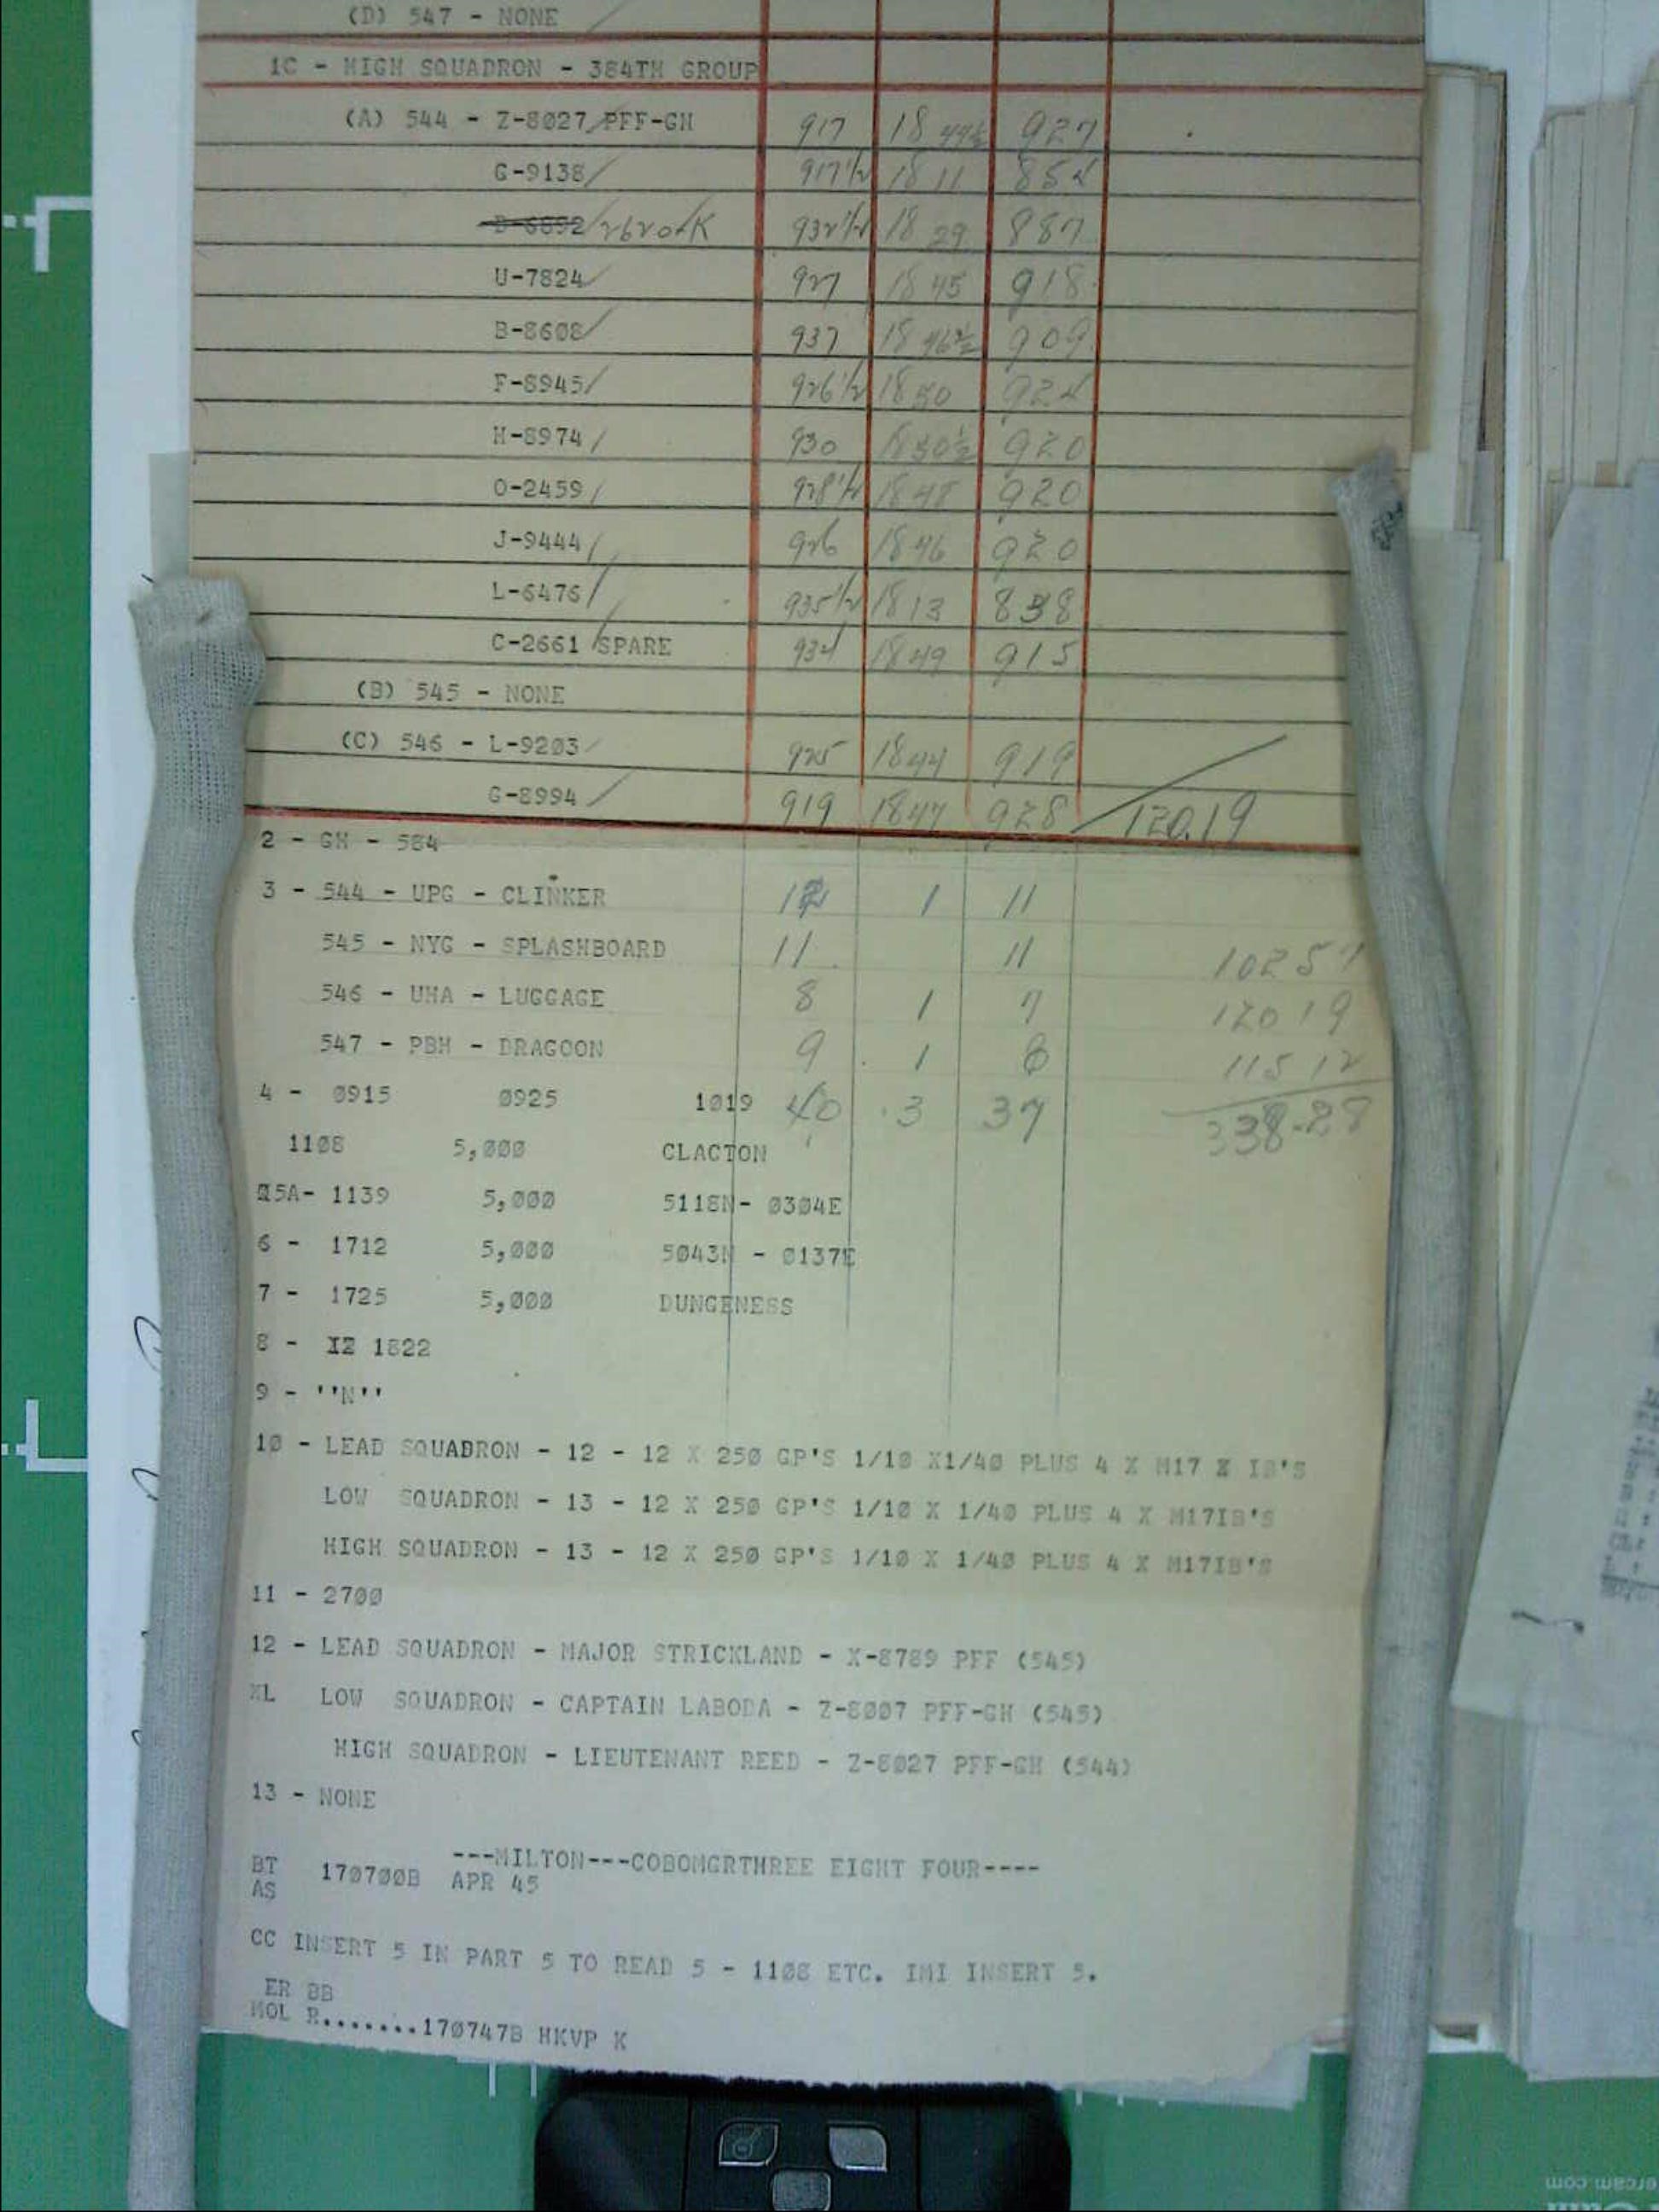 (D) 547 - NONE
1C - HIGH SQUADRON - 384TH GROUP
(A) 544 - Z-8027 PFF-GH 917 18 44½ 927
G-9138 917 1/2 18 11 854
B-6892 932 1/2 18 29 887
U-7824 927 18 45 918
B-8608 937 18 46½ 909
F-8945 926 1/2 18 50 924
H-8974 930 18 50½ 920
O-2459 928 1/2 18 48 920
J-9444 926 18 46 920
L-6476 935 1/2 18 13 838
C-2661 SPARE 934 18 49 915
(B) 545 - NONE
(C) 546 - L-9203 925 18 44 919
G-8994 919 18 47 928 120.19
2 - GH - 584
3 - 544 - UPG - CLINKER 12 1 11
545 - NYG - SPLASHBOARD 11 11 10257
546 - UHA - LUGGAGE 8 1 7 12019
547 - PBH - DRAGOON 9 1 8 11512
4 - 0915 0925 1019 40 3 37 338-28
1108 5,000 CLACTON
5A- 1139 5,000 5118N- 0304E
6 - 1712 5,000 5043N - 0137E
7 - 1725 5,000 DUNGENESS
8 - IZ 1822
9 - ''N''
10 - LEAD SQUADRON - 12 - 12 X 250 GP'S 1/10 X1/40 PLUS 4 X M17 X IB'S
LOW SQUADRON - 13 - 12 X 250 GP'S 1/10 X 1/40 PLUS 4 X M17IB'S
HIGH SQUADRON - 13 - 12 X 250 GP'S 1/10 X 1/40 PLUS 4 X M17IB'S
11 - 2700
12 - LEAD SQUADRON - MAJOR STRICKLAND - X-8789 PFF (545)
XL LOW SQUADRON - CAPTAIN LABODA - Z-8007 PFF-GH (545)
HIGH SQUADRON - LIEUTENANT REED - Z-8027 PFF-GH (544)
13 - NONE
---MILTON---COBOMGRTHREE EIGHT FOUR----
BT 170700B APR 45
AS
CC INSERT 5 IN PART 5 TO READ 5 - 1108 ETC. IMI INSERT 5.
ER BB
MOL R.......170747B HKVP K